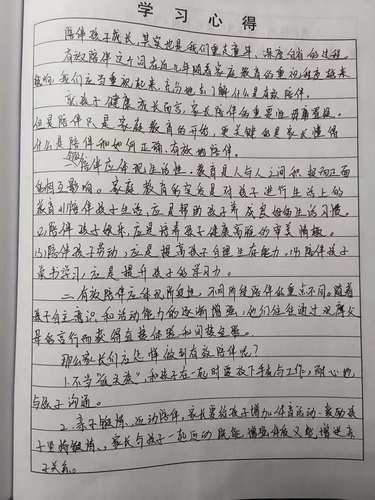 学习心得
陪伴孩子成长，其实也是我们重走童年、深度自省的过程。
有效陪伴这个词在近几年随着家庭教育的重视程度越来
我们应当重视起来，充分地去了解什么是有效陪伴。
就孩子健康成长而言，家长陪伴的重要性毋庸置疑。
但是陪伴只是家庭教育的开始，更关键的是家长懂得
什么是陪伴和如何正确、有效地陪伴。
陪伴应体现生活性。教育是人与人之间积极正面
的相互影响。家庭教育的实质是对孩子进行生活上的
教育。(1)陪伴孩子生活，应是帮助孩子养成良好的生活习惯。
(2)陪伴孩子娱乐，应是培养孩子健康高雅的审美情趣。
(3)陪伴孩子劳动，应是提高孩子自理生存能力。(4)陪伴孩子
读书学习，应是提升孩子的学习力。
二、有效陪伴应体现阶段性。不同阶段陪伴的重点不同。随着
孩子自主意识和活动能力的逐渐增强，他们往往通过观察父
母的言行而获得直接体验和间接经验。
那么家长们应怎样做到有效陪伴呢？
1.不当"低头族"，和孩子在一起时要放下手机与工作，耐心地
与孩子沟通。
2.亲子锻炼、运动陪伴，家长要给孩子增加体育活动，鼓励孩
子坚持锻炼、家长与孩子一起运动既能增强体质又能增进亲
子关系。